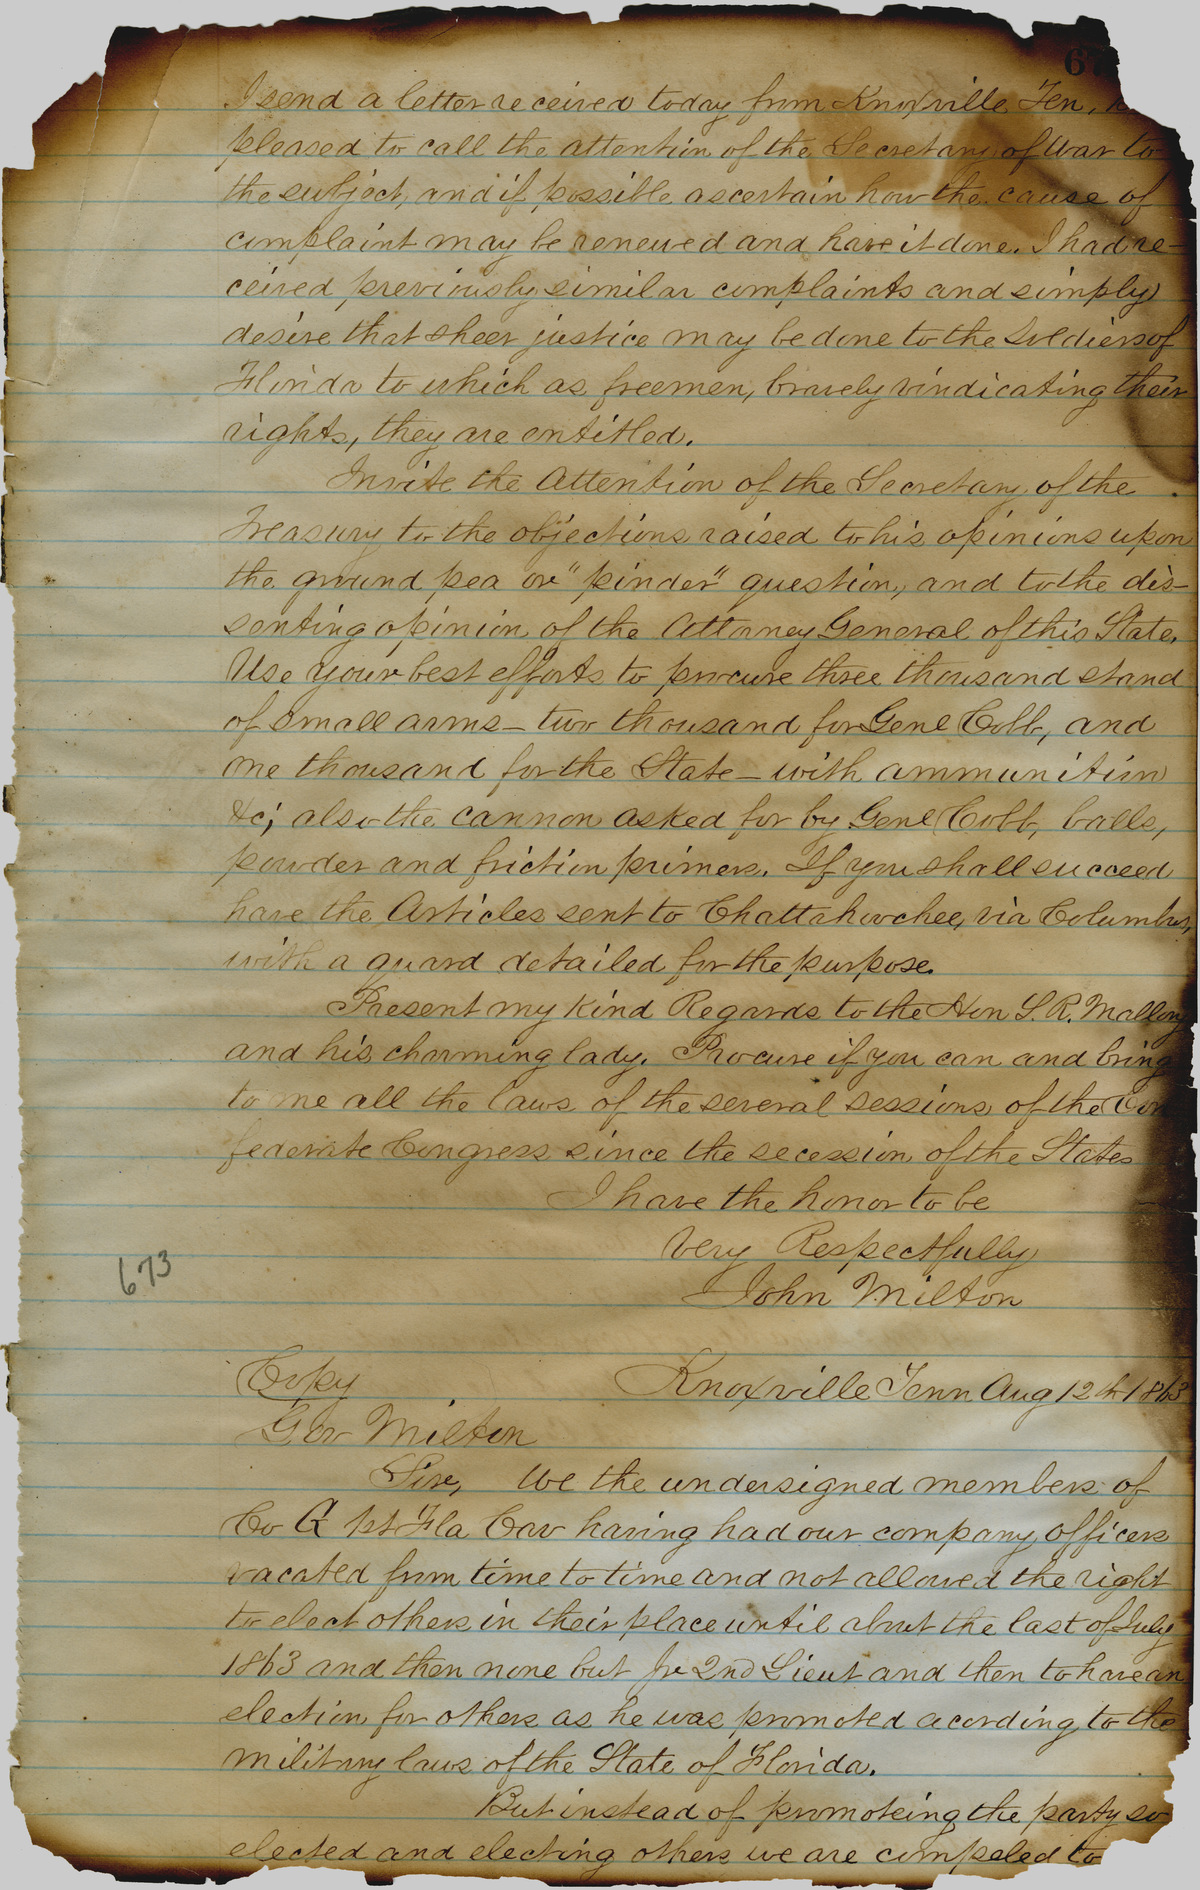 I send a letter received today from Knoxville Ten,
pleased to call the attention of the Secretary of War to
the subject, and if possible ascertain how the cause of
complaint may be renewed and have it done. I had re-
ceived previously similar complaints and simply
desire that sheer justice may be done to the Soldiers of
Florida to which as freemen, bravely vindicating their
rights, they are entitled.
Invite the Attention of the Secretary of the
Treasury to the objections raised to his opinions upon
the ground pea or "pinder" question, and to the dis-
senting opinion of the Attorney General of this State.
Use your best efforts to procure three thousand stand
of small arms - two thousand for Genl Cobb, and
one thousand for the State - with ammunition
&c; also the cannon asked for by Genl Cobb, balls,
powder and friction primers. If you shall succeed
have the Articles sent to Chattahoochee, via Columbus,
with a guard detailed for the purpose.
Present my kind Regards to the Hon S. R. Mallory
and his charming lady. Procure if you can and bring
to me all the laws of the several sessions of the Con
federate Congress since the secession of the States
I have the honor to be
Very Respectfully
John Milton
673
Copy Knoxville Tenn Aug 12th 1863
Gov Milton
Sir, We the undersigned members of
Co G 1st Fla Cav having had our company officers
vacated from time to time and not allowed the right
to elect others in their place until about the last of July
1863 and then none but Jr 2nd Lieut and then to have an
election for others as he was promoted acording to the
military laws of the State of Florida.
But instead of promoteing the party so
elected and electing others we are compeled to